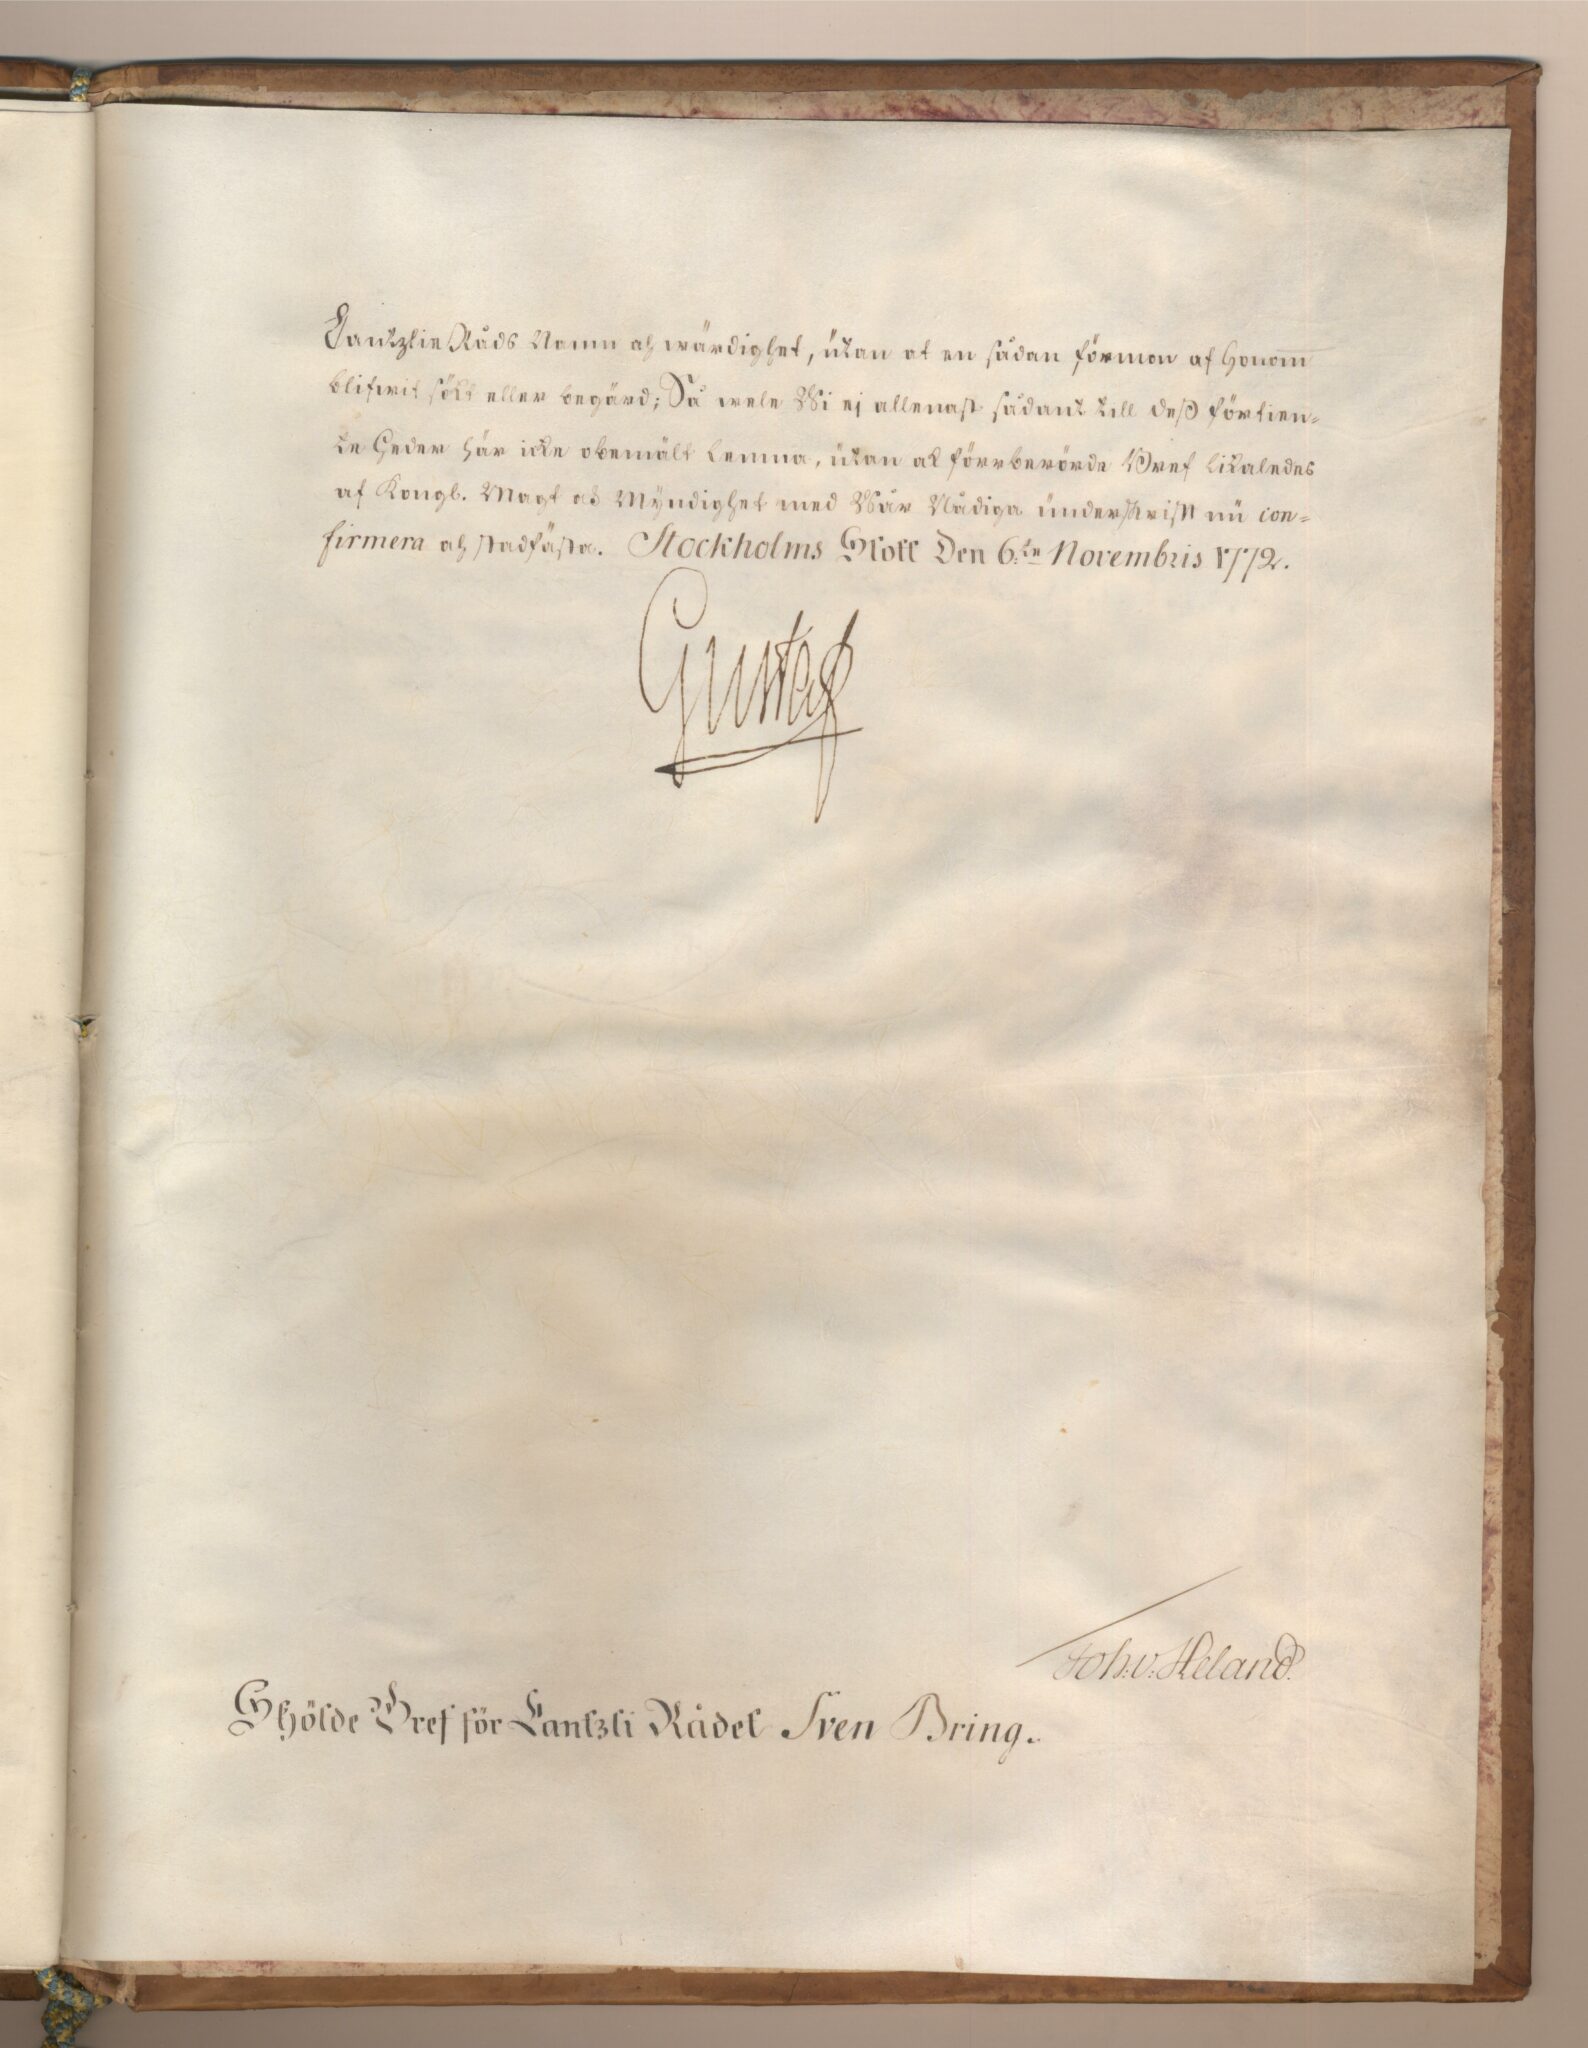 Cantzlie Råds Namn och wärdighet, ütan at en sådan förmon af Honom̅
blifwit sökt eller begärd; Så wele Wi ej allenast sådant till deß förtien-
te Heder här icke obemält lemna, ütan at förrberörde Bref likaledes
af Kongl. Magt och Myndighet med Wår Nådiga ünderskrift nü con-
firmera och stadfästa. Stockholms Slott Den 6:te Novembris 1772.
Gustaf
Joh: v: Heland.
Skölde Bref för Cantzli Rådet Sven Bring.